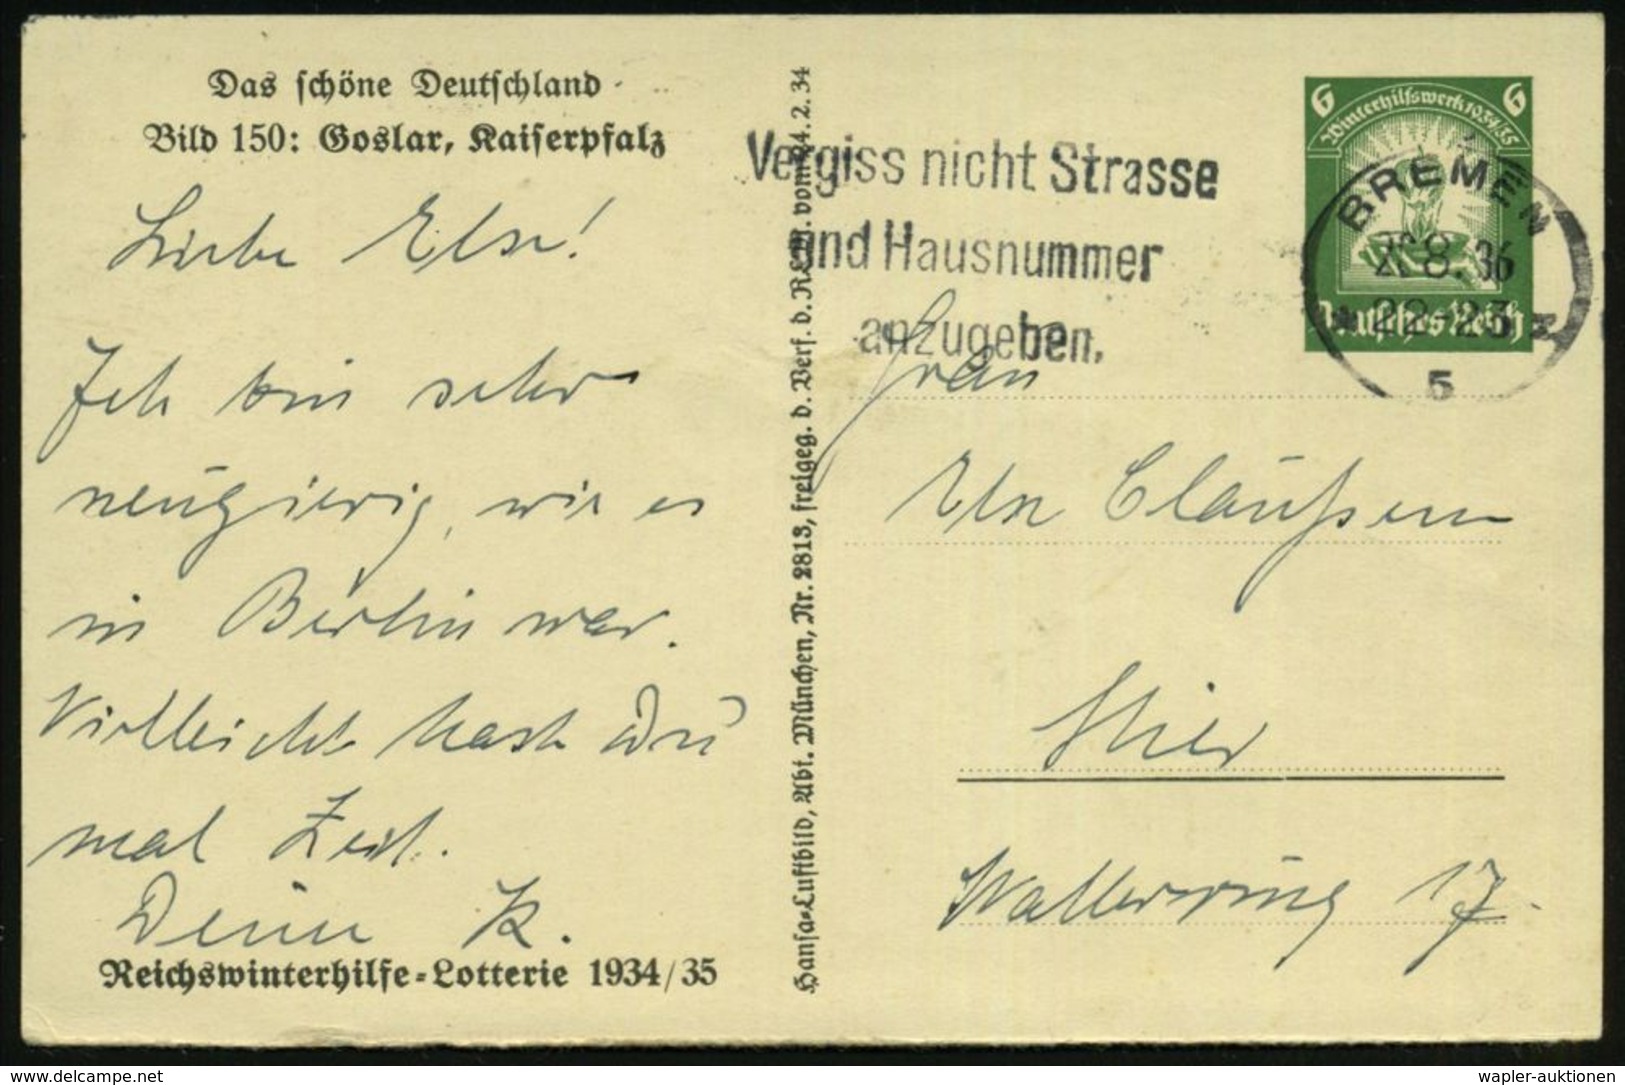 Das schöne Deutschland
Bild 150: Goslar, Kaiserpfalz
Liebe Else!
Ich bin sehr
neugierig, wie es
in Berlin war.
Vielleicht hast Du
mal Zeit.
Deine K.
Reichswinterhilfe-Lotterie 1934/35
Hansa-Luftbild, Abt. München, Nr. 2813, freigeg. d. Verf. d. RLM. vom 24. 2. 34
Vergiss nicht Strasse
und Hausnummer
anzugeben.
6 6
Winterhilfswerk 1934/35
Deutsches Reich
BREMEN
8.36
22-23
5
Frau
Else Claußen
Hier
Wallerring 17
delcampe.net
wapler-auktionen